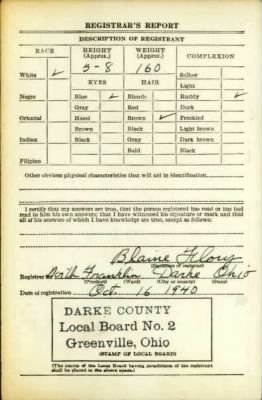 REGISTRAR'S REPORT
DESCRIPTION OF REGISTRANT
RACE HEIGHT (Approx.) WEIGHT (Approx.) COMPLEXION
White ✓ 5-8 160 Sallow
EYES HAIR Light
Negro Blue ✓ Blonde Ruddy ✓
Gray Red Dark
Oriental Hazel Brown ✓ Freckled
Brown Black Light brown
Indian Black Gray Dark brown
Bald Black
Filipino
Other obvious physical characteristics that will aid in identification
I certify that my answers are true; that the person registered has read or has had
read to him his own answers; that I have witnessed his signature or mark and that
all of his answers of which I have knowledge are true, except as follows:
Blaine Flory
(Signature of registrar)
Registrar for North Franklin Darke Ohio
(Precinct) (Ward) (City or county) (State)
Date of registration Oct. 16 1940
DARKE COUNTY
Local Board No. 2
Greenville, Ohio
(STAMP OF LOCAL BOARD)
(The stamp of the Local Board having jurisdiction of the registrant
shall be placed in the above space.)